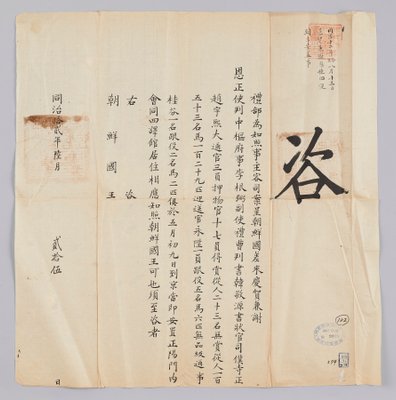 咨
禮部為知照事主客司案呈朝鮮國差來慶賀兼謝
恩正使判中樞府事李根弼副使禮曹判書韓敬源書狀官司僕寺正
趙宇熙大通官三員押物官十七員得賞從人二十三名無賞從人一百
五十三名馬一百二十九匹迎送官永陞一員跟役五名馬六匹無品級通事
桂芬一名跟役二名馬二匹俱於五月初九日到京當即安置正陽門內
會同四譯館居住相應知照朝鮮國王可也須至咨者
右 咨
朝鮮國王
同治拾貳年陸月 貳拾伍 日